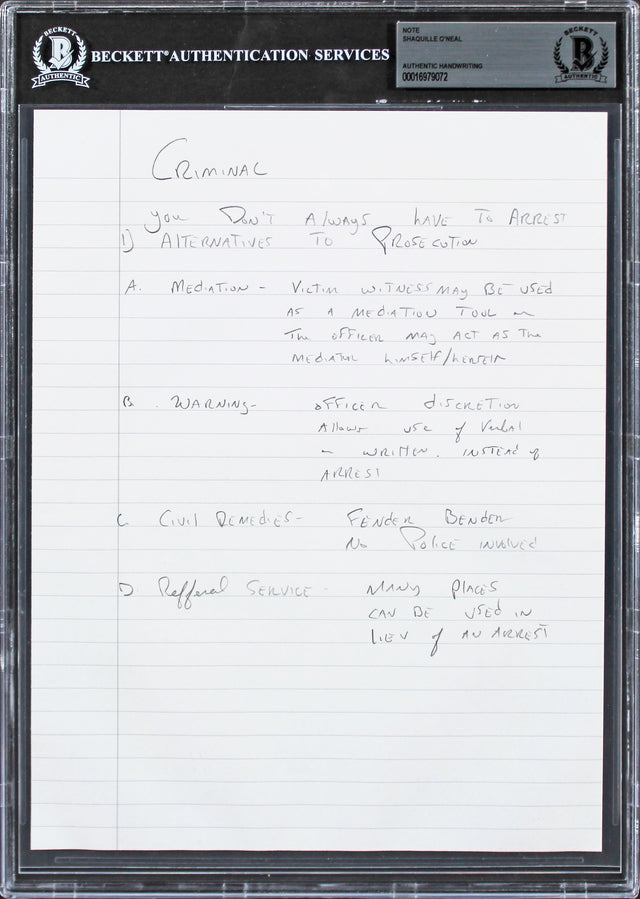 BECKETT
B
AUTHENTIC
BECKETT® AUTHENTICATION SERVICES
NOTE
SHAQUILLE O'NEAL
AUTHENTIC HANDWRITING
00016979072
BECKETT
B
AUTHENTIC
CRIMINAL
you DON'T Always have To ARREST
1) ALTERNATIVES TO PROSECUTION
A. MEDIATION - VICTIM WITNESS MAY BE USED
AS A MEDIATION TOOL or
The OFFICER MAY ACT AS The
MEDIATOR himself/herself
B. WARNING- OFFICER discretion
Allows use of Verbal
or WRITTEN. INSTEAD of
ARREST
C. Civil REMEDIES- FENDER BENDER
No Police involved
D. Refferal SERVICE - MANY places
CAN BE USED IN
LIEV of AN ARREST